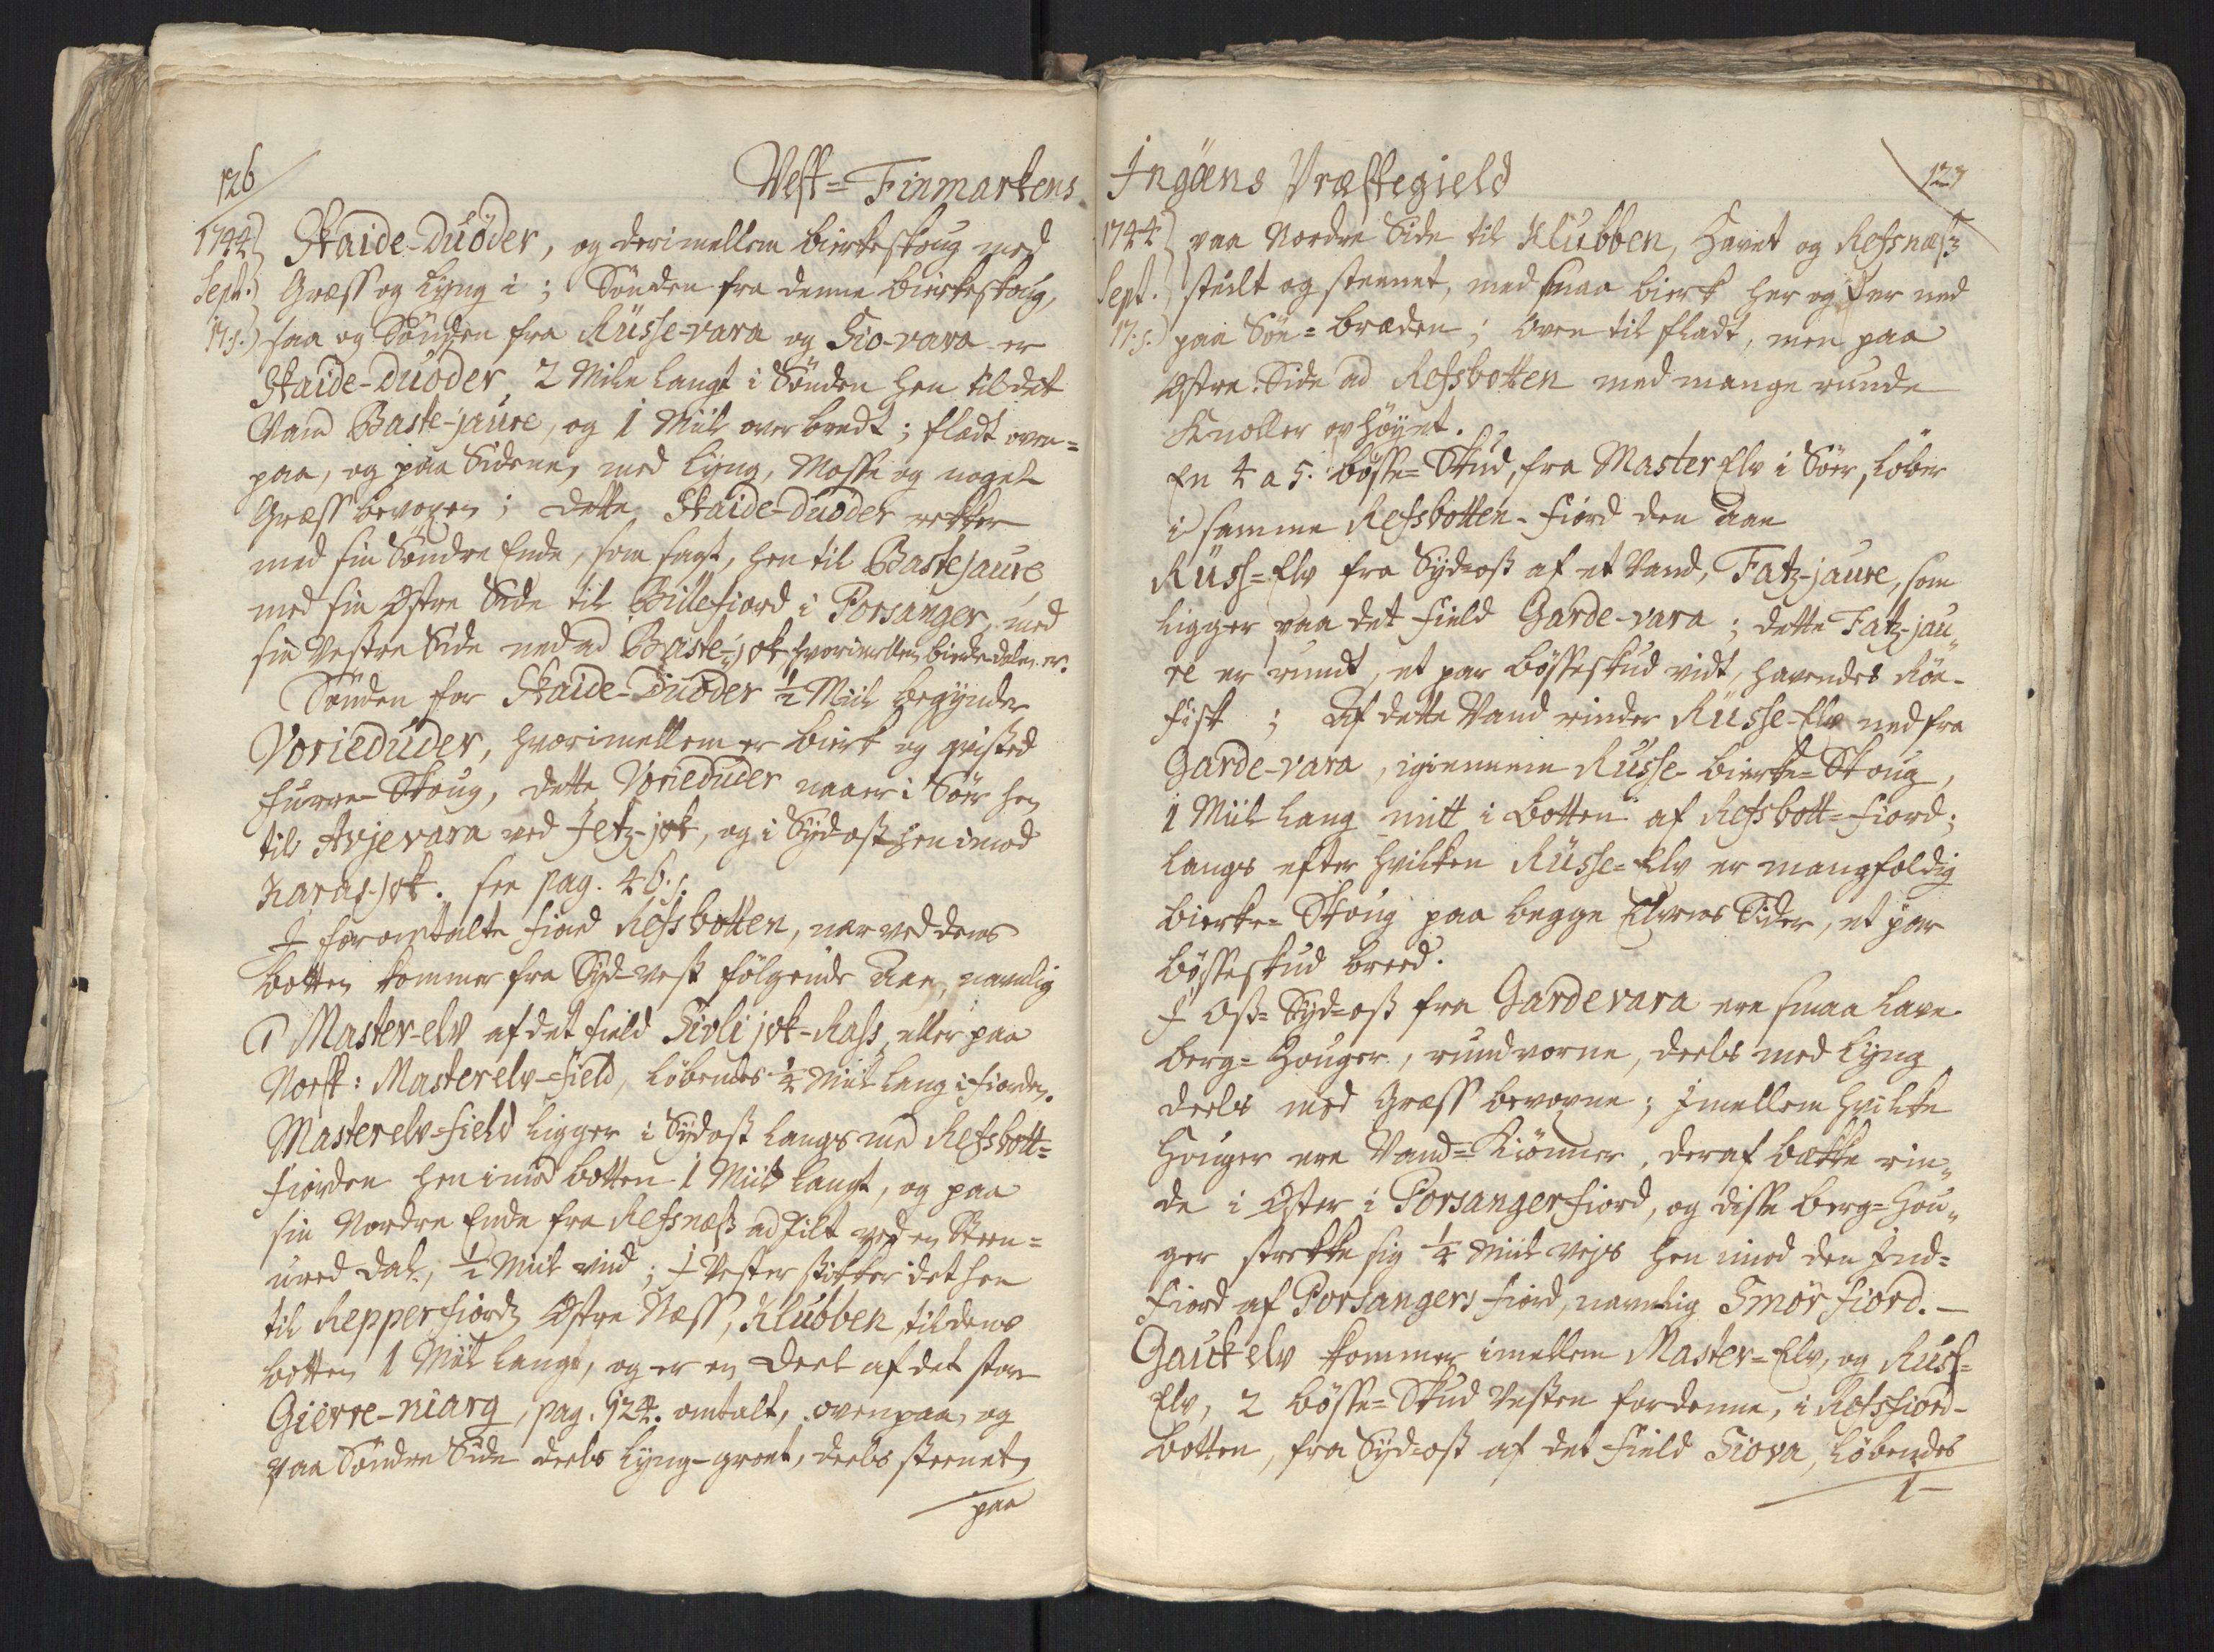 126
Vest=Finmarkens
1744 Skaide-Duöder, og derimellem Birkeskoug med
Sept: Græss og Lyng i; Sönden fra denne Birkeskoug,
17.s. saa og Sönden fra Rüsse-vara og Gio-vara er
Skaide-Duöder 2 Mile langt i Sönden hen til det
Vand Baste-jaure, og 1 Miil over bredt; fladt oven=
paa, og paa Siderne med Lyng, Mosse og noget
Græss bevoxen; dette Skaide-duöder rekker
med sin Söndre Ende, som sagt, hen til Bastejaure,
med sin Östre Side til Billefiord i Porsanger, med
sin Vestre Side ned ad Baste-jok hvorimellem Birkedalen er.
Sönden for Skaide-Duöder ½ Miil begynder
Vorieduder, hvorimellem er Birk og qvisted
Furre-Skoug, dette Vorieduder naaer i Söer hen
til Avjevara ved Jetz-jok, og i Syd-ost hen imod
Karas-jok. see pag. 46.s.
I foromtalte Fiord Refsbotten, nær ved dens
Botten kommer fra Syd-vest fölgende Aae, navnlig
Master-elv af det Field Giolijok-Rass, eller paa
Norsk: Masterelv-field, löbendes ¼ Miil lang i Fiorden.
Masterelv-field ligger i Sydost langs med Refsbott=
Fiorden hen imod Botten 1 Miil langt, og paa
sin Nordre Ende fra Refsnæss adskilt ved en Steen=
ured Dal, ½ Miil viid; I Vester stikker det hen
til Repperfiords Östre Næss, Klubben, til dens
Botten 1 Miil langt, og er en Deel af det store
Gierre-niarg, pag. 124. omtalt, ovenpaa, og
paa Söndre Side deels Lyng-groet, deels steenet,
paa
Ingöens Præstegield
127
1744 paa Nordre Side til Klubben, Havet og Refsnæss
Sept. steilt og steenet, med smaa Birk her og der ned
17.s. paa Söe=Bræden; Oven til fladt, men paa
Östre Side ad Refsbotten med mange runde
Knoller ophöyet.
En 4 a 5. Bösse=Skud, fra Master Elv i Söer, löber
i samme Refsbotten-Fiord den Aae
Rüss=Elv fra Syd-ost af et Vand, Fatz-jaure, som
ligger paa det Field Garde-vara; dette Fatz-jau„
re er rundt, et par Bösseskud vidt, havendes Röe-
Fisk; Af dette Vand rinder Rüsse-Elv ned fra
Garde-vara, igiennem Russe-Birke=Skoug,
1 Miil lang mitt i Botten af Refsbott=Fiord;
langs efter hvilken Rüsse=Elv er mangfoldig
Birke=Skoug paa begge Elvens Sider, et par
Bösseskud breed.
I Ost=Syd-ost fra Gardevara ere smaa lave
Berg=Houger, rundvorne, deels med Lyng
deels med Græss bevoxne; Imellem hvilke
Houger ere Vand=Kiönner, deraf Bække rin„
de i Öster i Porsangerfiord, og disse Berg=Hou„
ger strekke sig ¼ Miil vejs hen imod den Ind=
Fiord af Porsangers Fiord, navnlig Smörfiord.—
Gauckelv kommer imellem Master=Elv, og Russ=
Elv, 2 Bösse=Skud Vesten for denne, i Refsfiord-
Botten, fra Syd-ost af det Field Giova, löbendes
1—